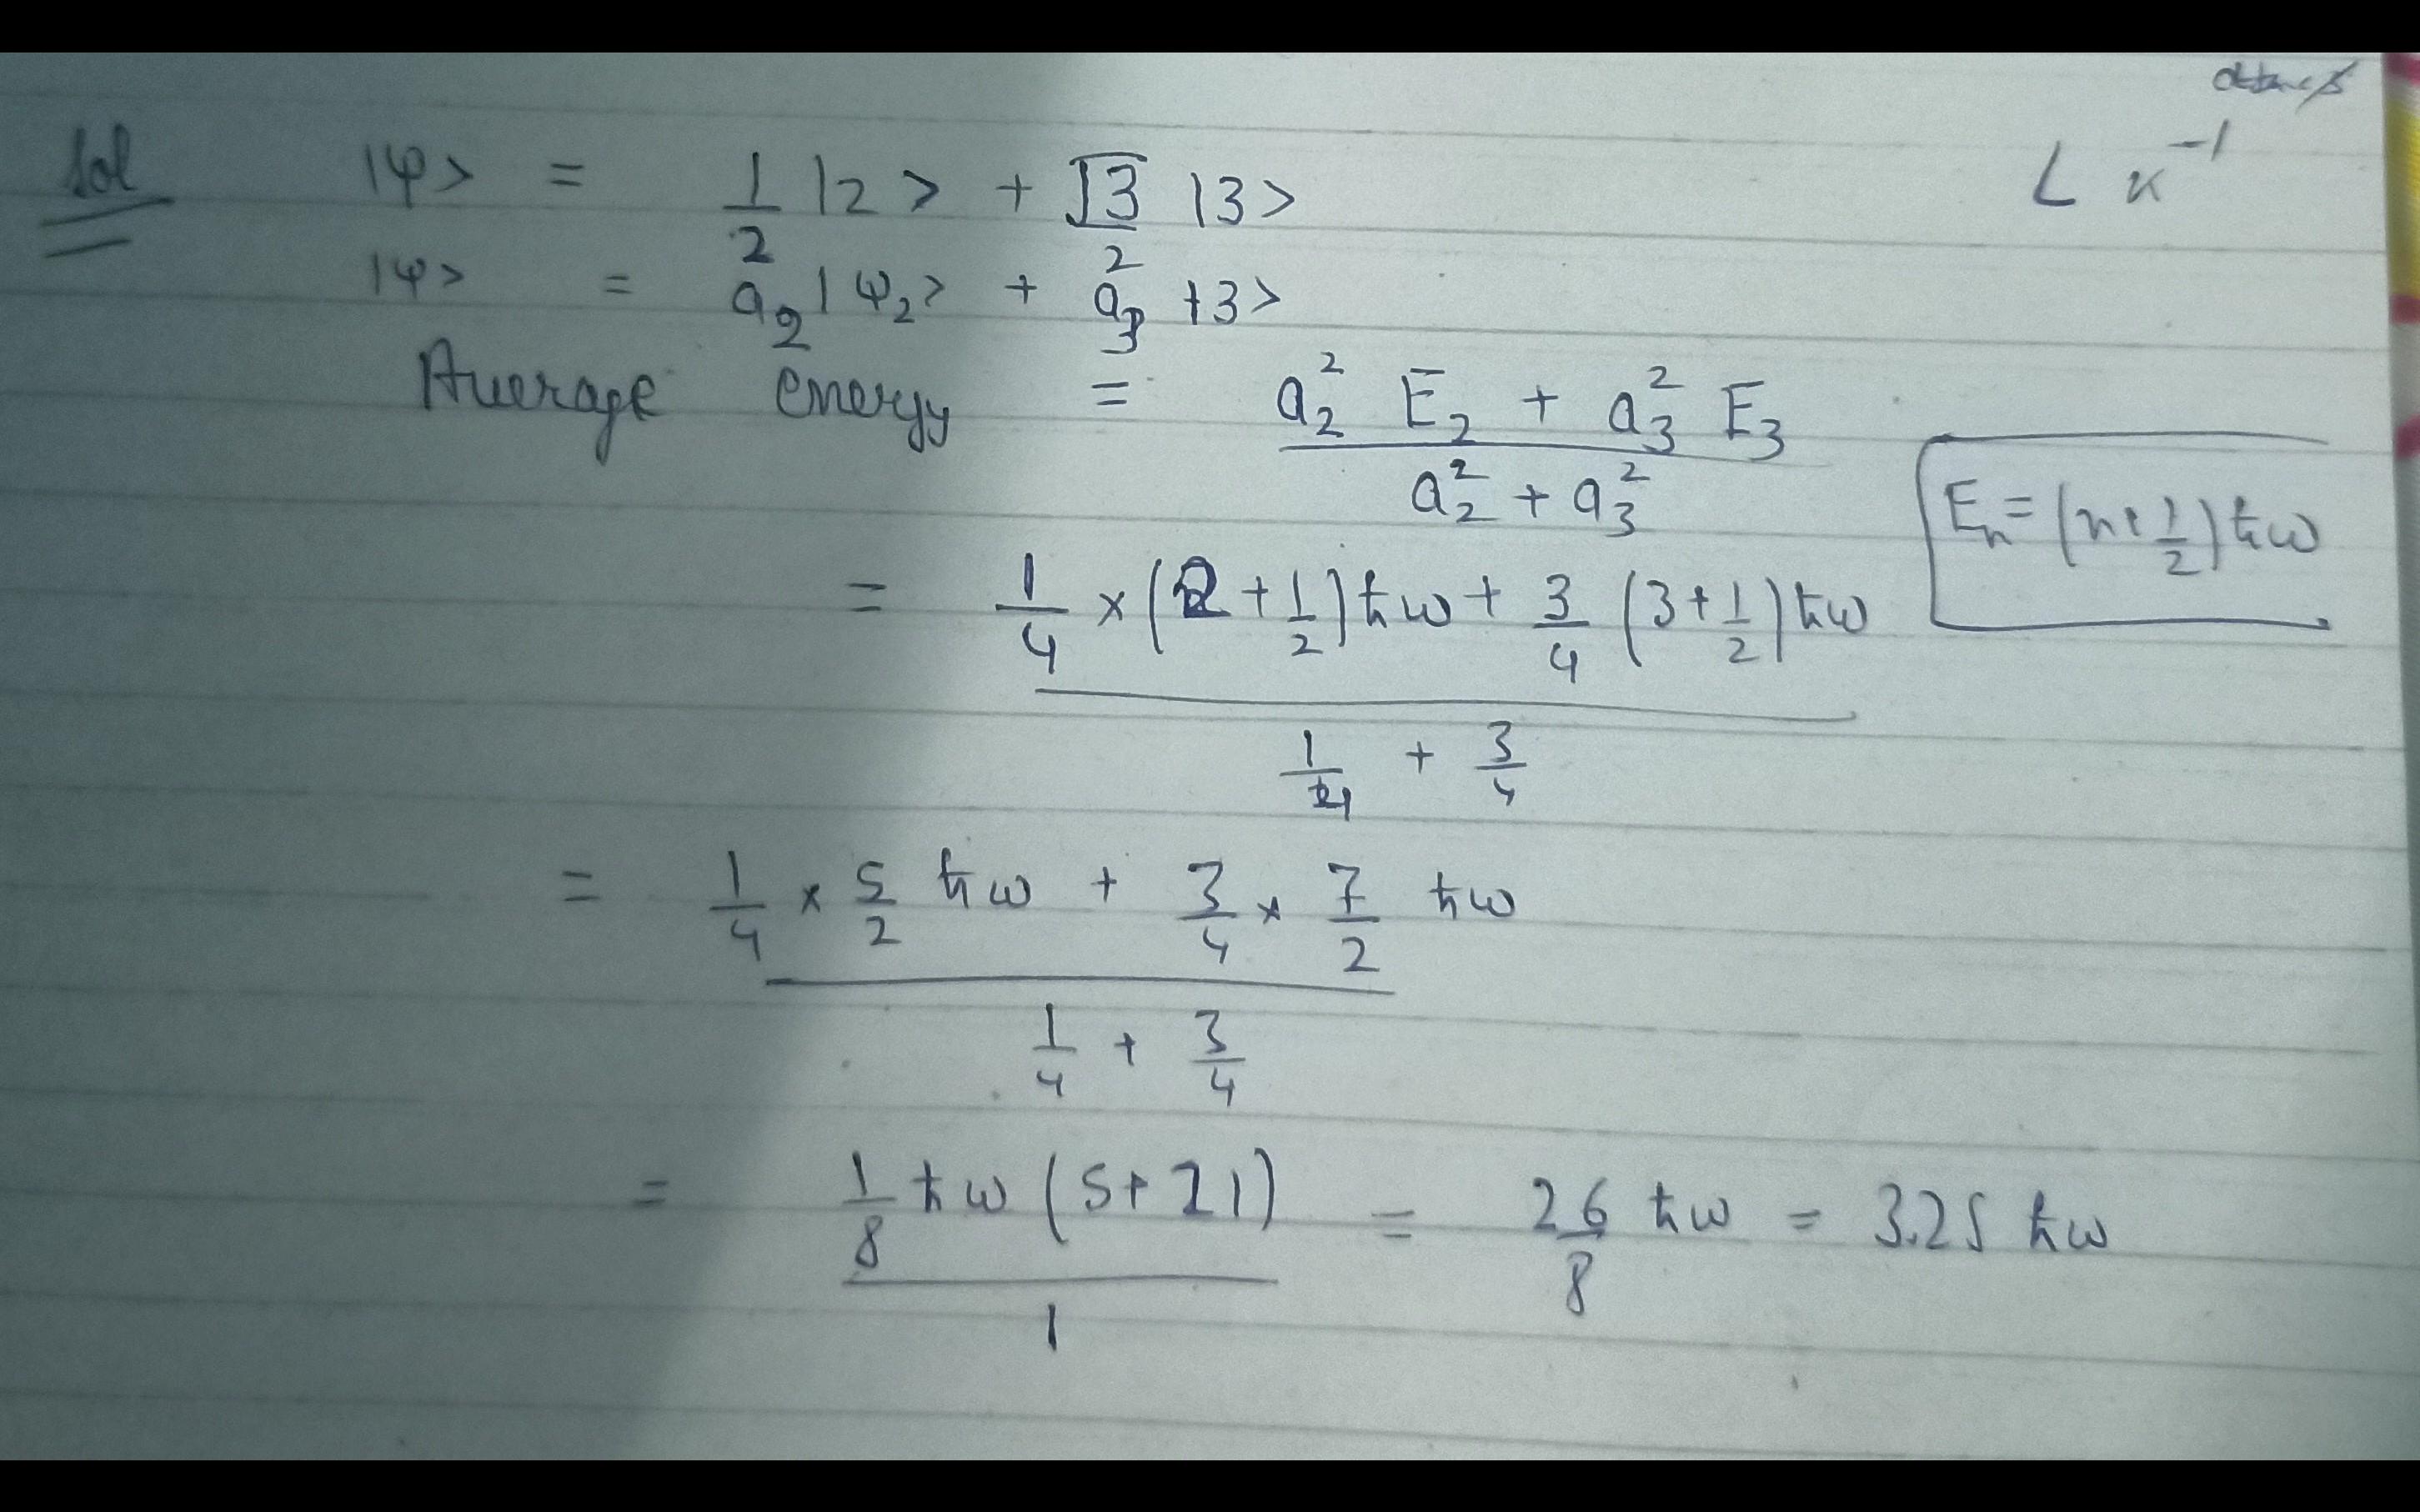 Sol |ψ> = 1/2 |2> + √3/2 |3>
|ψ> = a₂ |ψ₂> + a₃ |3>
Average energy = (a₂² E₂ + a₃² E₃) / (a₂² + a₃²)
Eₙ = (n + 1/2) ħω
= (1/4 × (2 + 1/2) ħω + 3/4 (3 + 1/2) ħω) / (1/4 + 3/4)
= (1/4 × 5/2 ħω + 3/4 × 7/2 ħω) / (1/4 + 3/4)
= (1/8 ħω (5 + 21)) / 1 = 26/8 ħω = 3.25 ħω